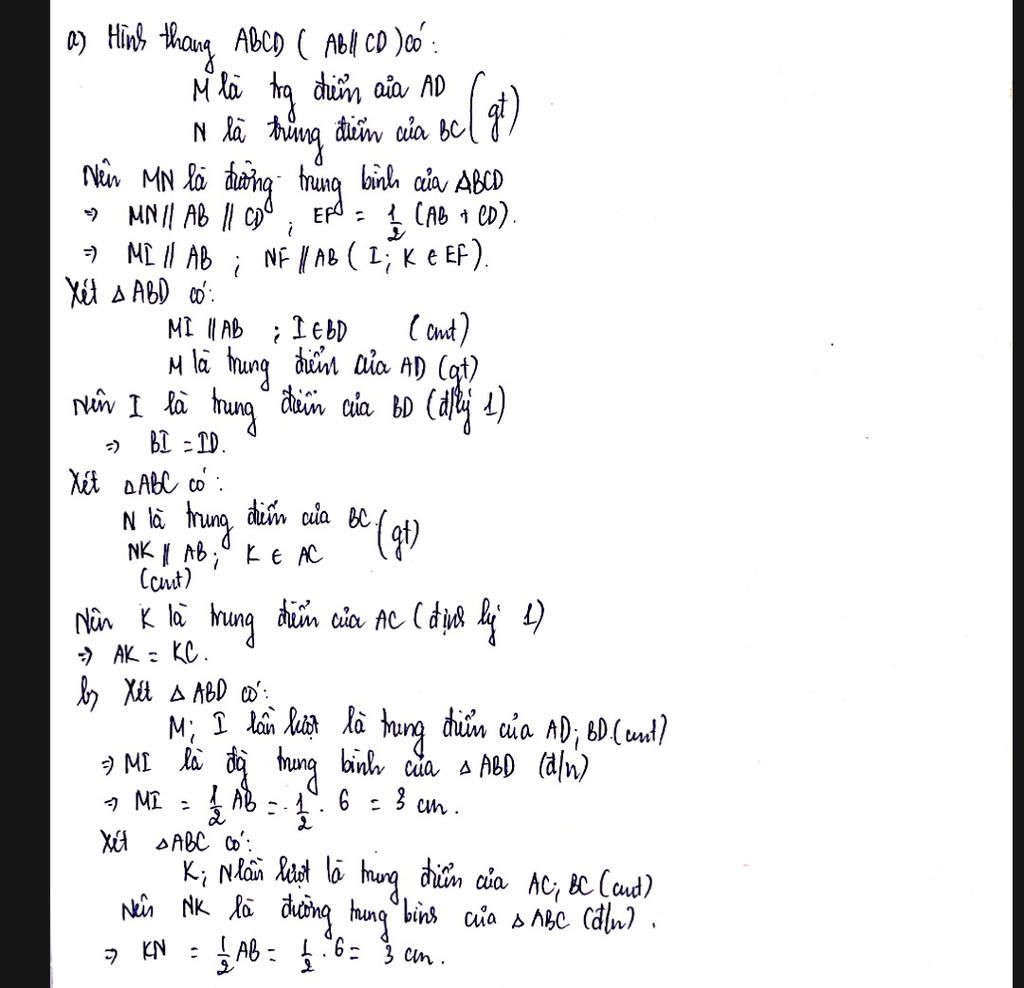 a) Hình thang ABCD ( AB // CD ) có :
M là trg điểm của AD
N là trung điểm của BC (gt)
Nên MN là đường trung bình của ABCD
⇒ MN // AB // CD ; EF = 1/2 (AB + CD).
⇒ MI // AB ; NF // AB ( I ; K ∈ EF ).
Xét Δ ABD có :
MI // AB ; I ∈ BD (cmt)
M là trung điểm của AD (gt)
Nên I là trung điểm của BD (đ/lý 1)
⇒ BI = ID.
Xét Δ ABC có :
N là trung điểm của BC (gt)
NK // AB ; K ∈ AC
(cmt)
Nên K là trung điểm của AC ( định lý 1)
⇒ AK = KC.
b) Xét Δ ABD có :
M ; I lần lượt là trung điểm của AD ; BD (cmt)
⇒ MI là đg trung bình của Δ ABD (đ/n)
⇒ MI = 1/2 AB = 1/2 . 6 = 3 cm.
Xét Δ ABC có :
K ; N lần lượt là trung điểm của AC ; BC (cmt)
Nên NK là đường trung bình của Δ ABC (đ/n).
⇒ KN = 1/2 AB = 1/2 . 6 = 3 cm.